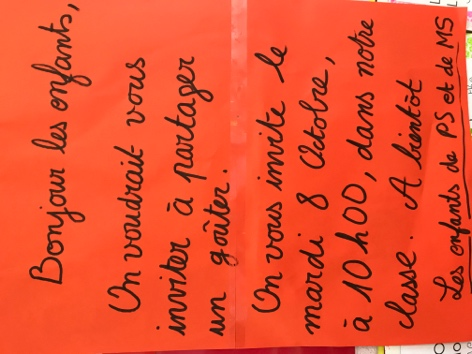 Bonjour les enfants,
On voudrait vous
inviter à partager
un goûter.
On vous invite le
mardi 8 Octobre,
à 10h00, dans notre
classe. A bientôt
Les enfants de PS et de MS